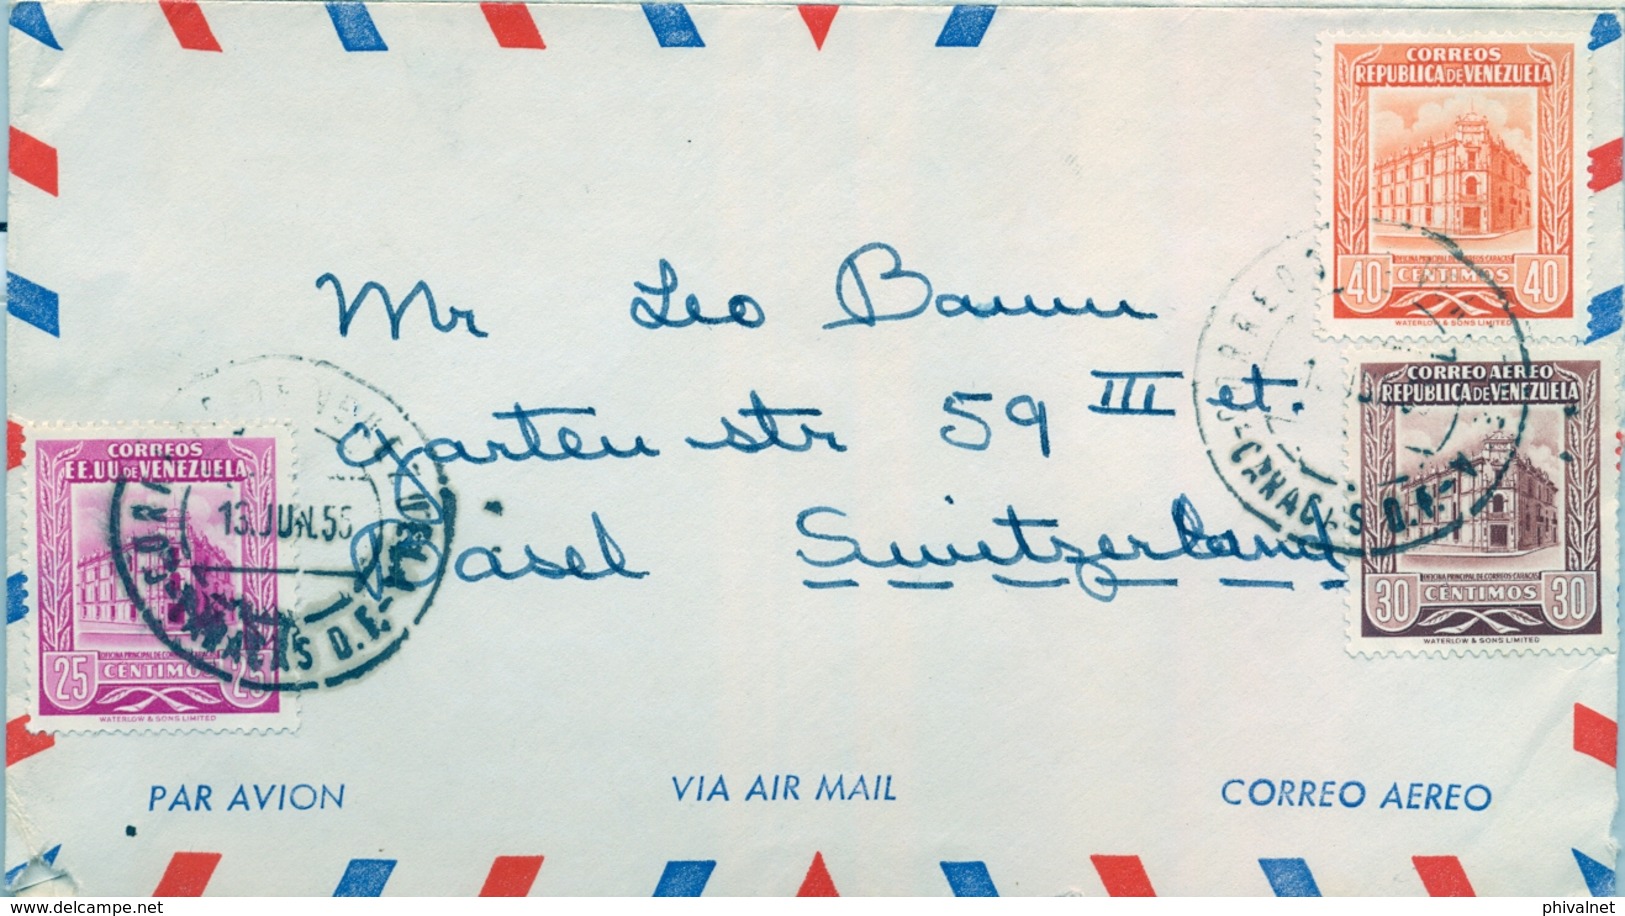 CORREOS
REPUBLICA DE VENEZUELA
OFICINA PRINCIPAL DE CORREOS-CARACAS
40 CENTIMOS 40
WATERLOW & SONS LIMITED
CORREO AEREO
REPUBLICA DE VENEZUELA
OFICINA PRINCIPAL DE CORREOS-CARACAS
30 CENTIMOS 30
WATERLOW & SONS LIMITED
Mr Leo Baum
Gartenstr 59 III et.
Basel Switzerland
CORREOS
EE.UU. DE VENEZUELA
OFICINA PRINCIPAL DE CORREOS-CARACAS
25 CENTIMOS 25
WATERLOW & SONS LIMITED
13.JUN.56
CARACAS D.F.
CARACAS D.F.
PAR AVION VIA AIR MAIL CORREO AEREO
delcampe.net
phivalnet